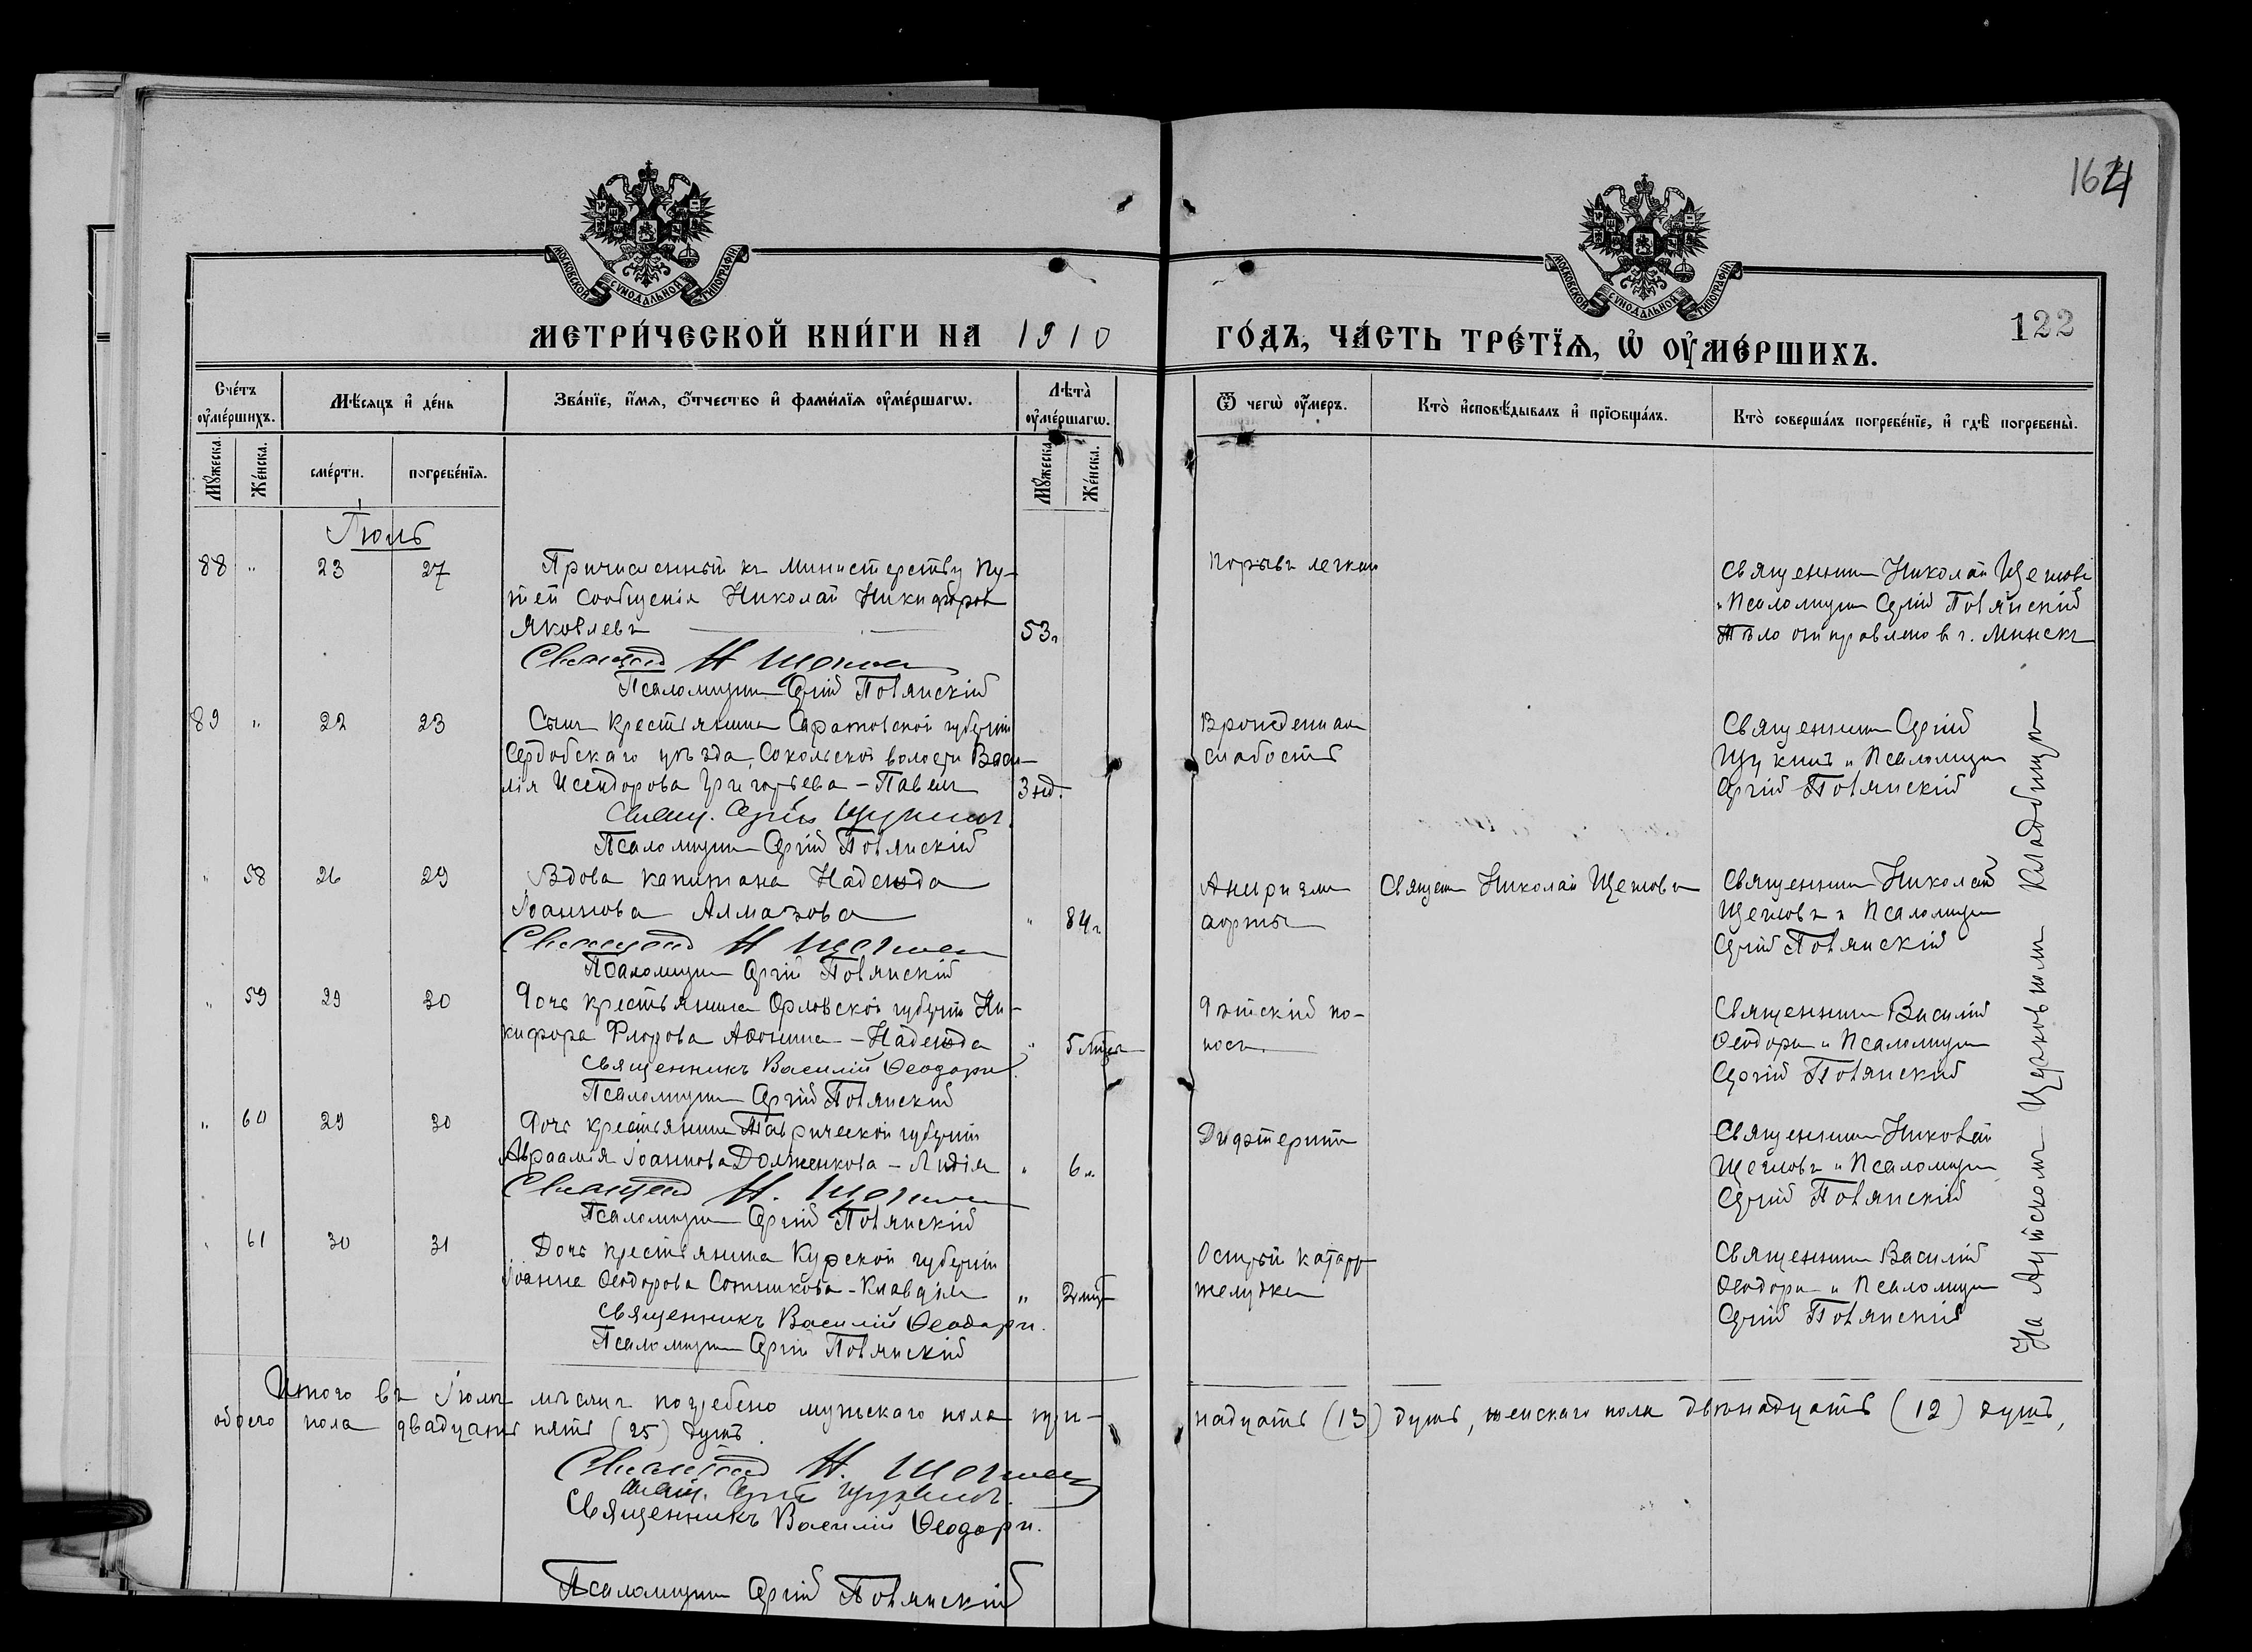 164
МОСКОВСКОЙ СѴНОДАЛЬНОЙ ТИПОГРАФІИ
МОСКОВСКОЙ СѴНОДАЛЬНОЙ ТИПОГРАФІИ
МЕТРИ́ЧЕСКОЙ КНИ́ГИ НА 1910 ГО́ДЪ, ЧА́СТЬ ТРЕ́ТЇѦ, Ѡ҆ ОУ҆МЕ́РШИХЪ.
122
Сче́тъ оу҆ме́ршихъ.
Мѣ́сѧцъ и҆ де́нь
Зва́нїе, и҆́мѧ, ѻ҆́тчество и҆ фами́лїѧ оу҆ме́ршагѡ.
Лѣта̀ оу҆ме́ршагѡ.
Ѿ чегѡ̀ оу҆́меръ.
Кто̀ и҆сповѣ́дывалъ и҆ прїѡбща́лъ.
Кто̀ соверша́лъ погребе́нїе, и҆ гдѣ̀ погребены̀.
Мꙋ́жеска. Же́нска.
сме́рти. погребе́нїѧ.
Мꙋ́жеска. Же́нска.
Іюль
88 " 23 27
Причисленный къ Министерству Пу-
тей Сообщенія Николай Никифоров
Яковлевъ 53 г
Священ Н Щегловъ
Псаломщик Сергій Повянскій
Порывъ легких
Священник Николай Щегловъ
и Псаломщик Сергій Повянскій
Тѣло отправлено в г. Минскъ
89 " 22 23
Сынъ крестьянина Саратовской губерніи
Сердобскаго уѣзда, Сокольской волости Васи-
лія Исидорова Григорьева - Павелъ 3 нд.
Свящ. Сергій Щукинъ.
Псаломщик Сергій Повянскій
Врожденная
слабость
Священник Сергій
Щукинъ и Псаломщик
Сергій Повянскій
" 58 26 29
Вдова капитана Надежда
Іоаннова Алмазова " 84 г
Священ Н Щегловъ
Псаломщик Сергій Повянскій
Анеризма
аорты
Священ Николай Щегловъ
Священник Николай
Щегловъ и Псаломщик
Сергій Повянскій
" 59 29 30
Дочь крестьянина Орловской губерніи Ни-
кифора Флорова Аѳонина - Надежда " 5 мѣс
Священникъ Василій Ѳеодори.
Псаломщик Сергій Повянскій
Дѣтскій по-
носъ.
Священник Василій
Ѳеодори и Псаломщик
Сергій Повянскій
" 60 29 30
Дочь крестьянина Таврической губерніи
Авраамія Іоаннова Долженкова - Лидія " 6 л.
Священ Н. Щегловъ
Псаломщик Сергій Повянскій
Дифтеритъ
Священник Николай
Щегловъ и Псаломщик
Сергій Повянскій
" 61 30 31
Дочь крестьянина Курской губерніи
Іоанна Ѳеодорова Сотникова - Клавдія " 2 мѣс
Священникъ Василій Ѳеодори.
Псаломщик Сергій Повянскій
Острый катарръ
желудка
Священник Василій
Ѳеодори и Псаломщик
Сергій Повянскій
На Аутскомъ Церковномъ Кладбищѣ
Итого въ Іюлѣ мѣсяцѣ погребено мужскаго пола три-надцать (13) душъ, женскаго пола двѣнадцать (12) душъ,
обоего пола двадцать пять (25) душъ.
Священ Н. Щегловъ
Свящ. Сергій Щукинъ.
Священникъ Василій Ѳеодори.
Псаломщик Сергій Повянскій